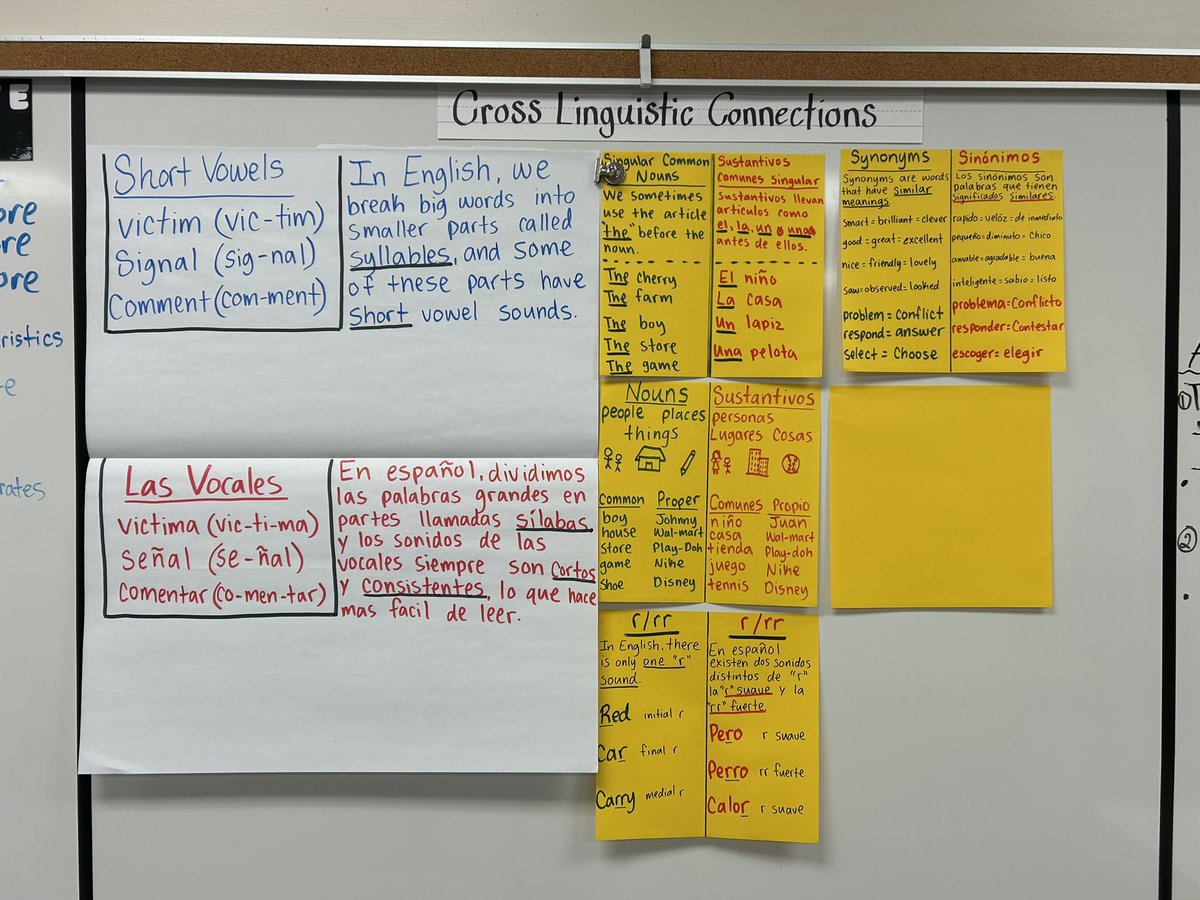 Cross Linguistic Connections
E
ore
ore
ore
ristics
-e
rates
Short Vowels
victim (vic-tim)
Signal (sig-nal)
Comment (com-ment)
In English, we
break big words into
smaller parts called
syllables, and some
of these parts have
short vowel sounds.
Las Vocales
victima (vic-ti-ma)
señal (se-ñal)
comentar (co-men-tar)
En español, dividimos
las palabras grandes en
partes llamadas sílabas
y los sonidos de las
vocales siempre son cortos
y consistentes, lo que hace
mas facil de leer.
Singular Common
Nouns
We sometimes
use the article
"the" before the
noun.
The cherry
The farm
The boy
The store
The game
Sustantivos
comunes singular
Sustantivos llevan
artículos como
el, la, un o unas
antes de ellos.
El niño
La casa
Un lapiz
Una pelota
Synonyms
Synonyms are words
that have similar
meanings.
smart = brilliant = clever
good = great = excellent
nice = friendly = lovely
saw = observed = looked
problem = conflict
respond = answer
select = Choose
Sinónimos
Los sinónimos son
palabras que tienen
significados similares.
rapido = velóz = de inmediato
pequeño = diminuto = Chico
amable = agradable = buena
inteligente = sabio = listo
problema = Conflicto
responder = Contestar
escoger = elegir
Nouns
people places
things
Common Proper
boy Johnny
house Wal-mart
store Play-Doh
game Nike
shoe Disney
Sustantivos
personas
Lugares Cosas
Comunes Propio
niño Juan
casa Wal-mart
tienda Play-doh
juego Nike
tennis Disney
r/rr
In English, there
is only one "r"
sound.
Red initial r
Car final r
Carry medial r
r/rr
En español
existen dos sonidos
distintos de "r"
la "r" suave y la
"rr" fuerte.
Pero r suave
Perro rr fuerte
Calor r suave
2